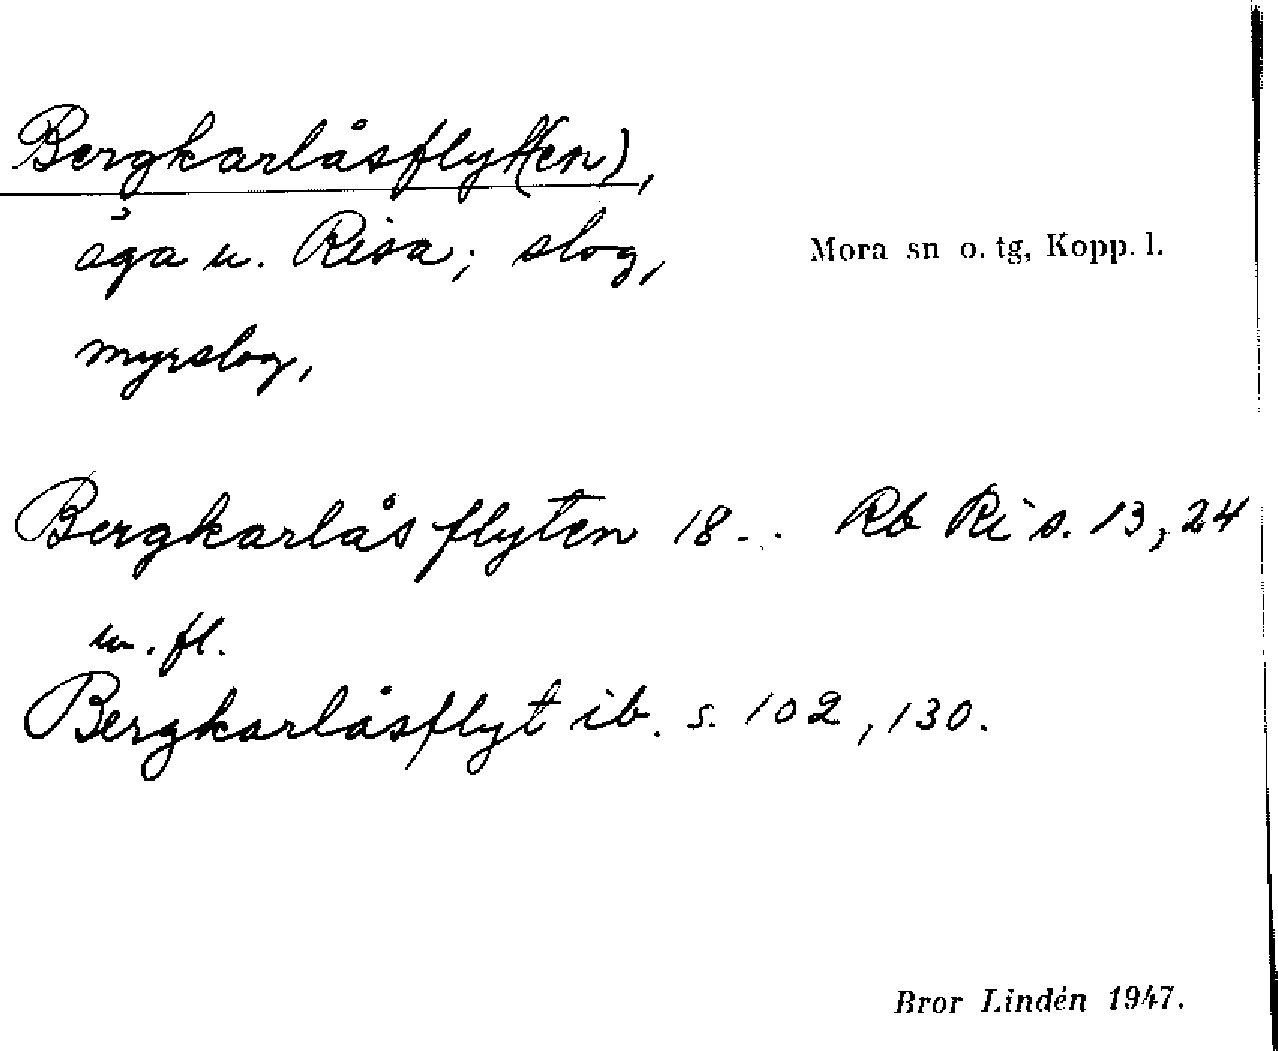 Bergkarlåsflyt(en),
äga u. Risa; slog,
Mora sn o. tg, Kopp. l.
myrslog,
Bergkarlåsflyten 18-.. Rb Ri s. 13, 24
m. fl.
Bergkarlåsflyt ib. s. 102, 130.
Bror Lindén 1947.